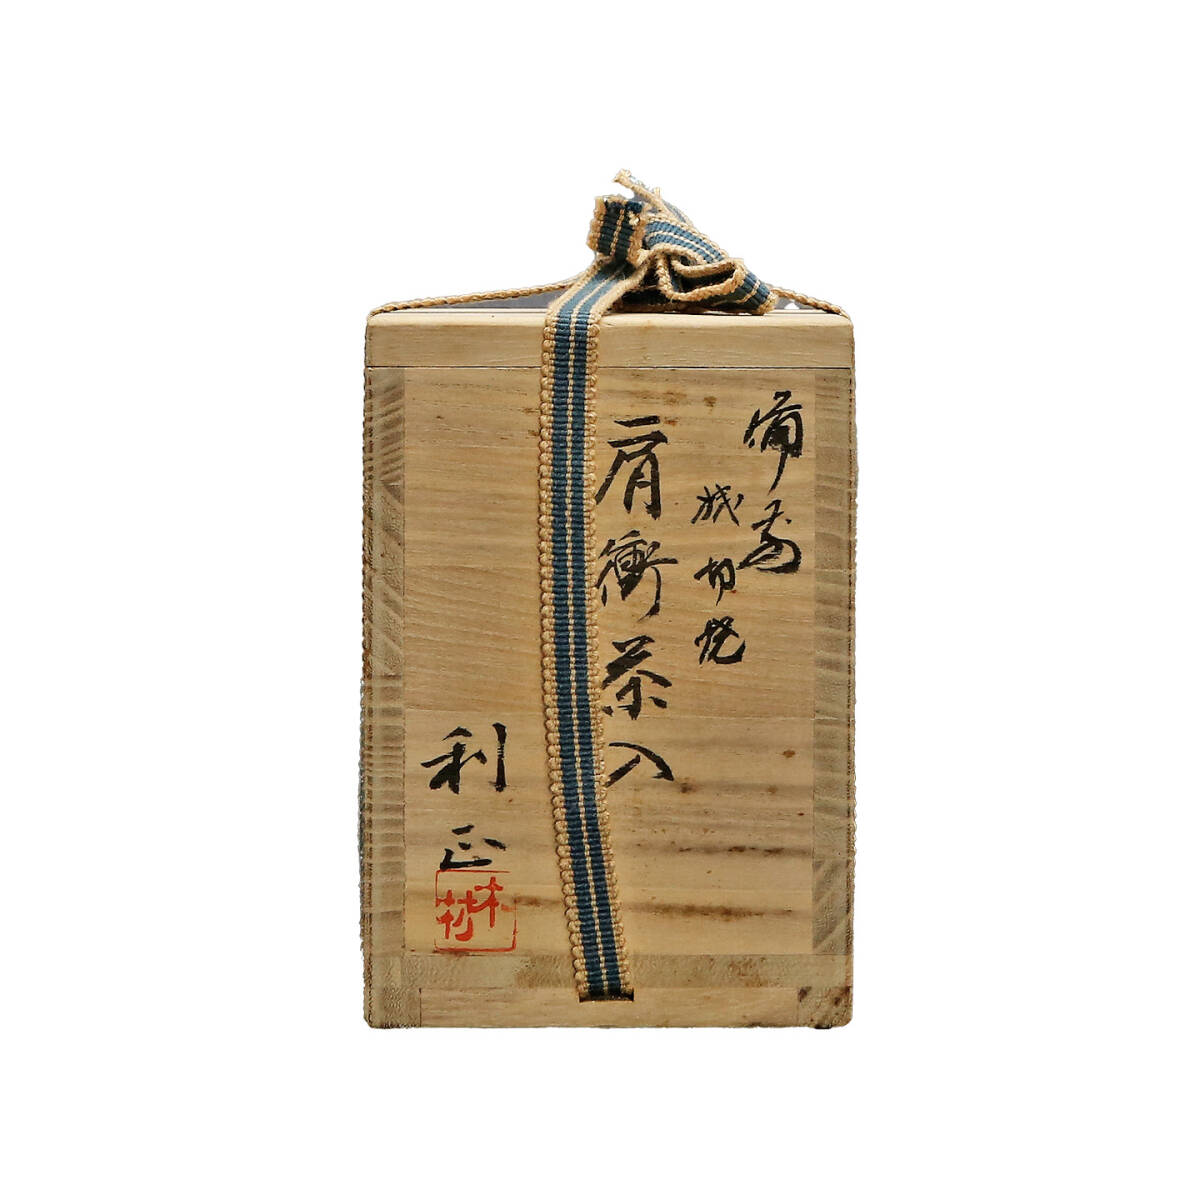 備前
桟切焼
肩衝茶入
利正
木村